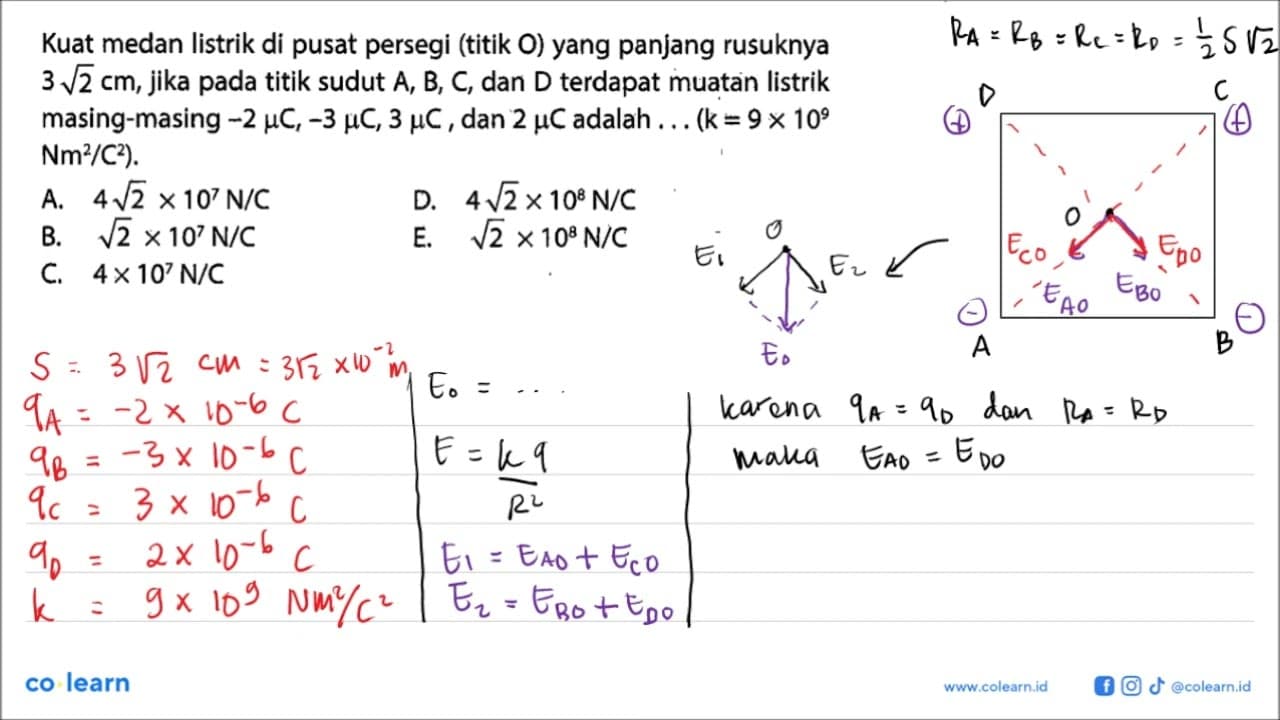 Kuat medan listrik di pusat persegi (titik O) yang panjang rusuknya
3√2 cm, jika pada titik sudut A, B, C, dan D terdapat muatan listrik
masing-masing −2 μC, −3 μC, 3 μC, dan 2 μC adalah . . . (k = 9 × 10⁹
Nm²/C²).
A. 4√2 × 10⁷ N/C
B. √2 × 10⁷ N/C
C. 4 × 10⁷ N/C
D. 4√2 × 10⁸ N/C
E. √2 × 10⁸ N/C
R_A = R_B = R_C = R_D = 1/2 S√2
D C
(+) (+)
O
E_CO E_DO
E_AO E_BO
(−) (−)
A B
O
E₁ E₂
E₀
S = 3√2 cm = 3√2 × 10⁻² m
q_A = −2 × 10⁻⁶ C
q_B = −3 × 10⁻⁶ C
q_C = 3 × 10⁻⁶ C
q_D = 2 × 10⁻⁶ C
k = 9 × 10⁹ Nm²/C²
E₀ = ....
E = k q / R²
E₁ = E_AO + E_CO
E₂ = E_BO + E_DO
karena q_A = q_D dan R_A = R_D
maka E_AO = E_DO
co learn
www.colearn.id
@colearn.id